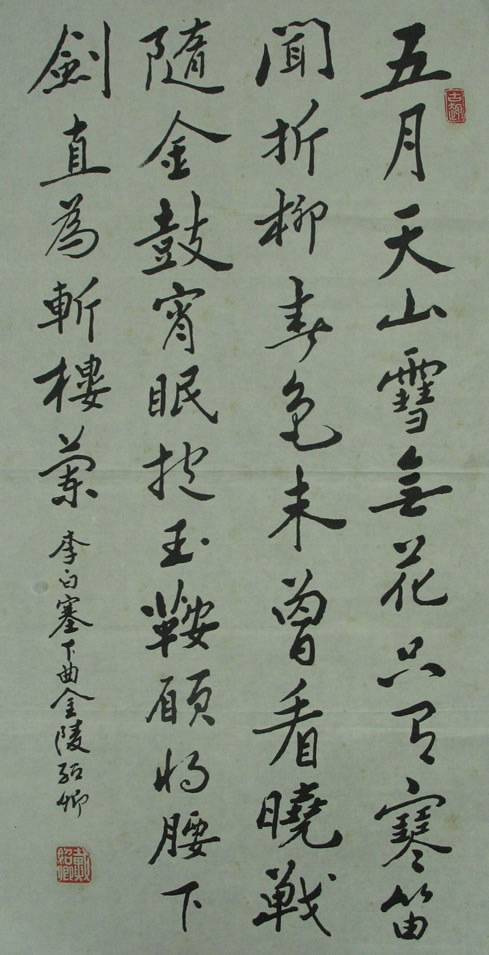 五月天山雪無花只有寒笛
聞折柳春色未曾看曉戰
隨金鼓宵眠抱玉鞍願將腰下
劍直為斬樓蘭
李白塞下曲金陵紹卿
戴紹卿